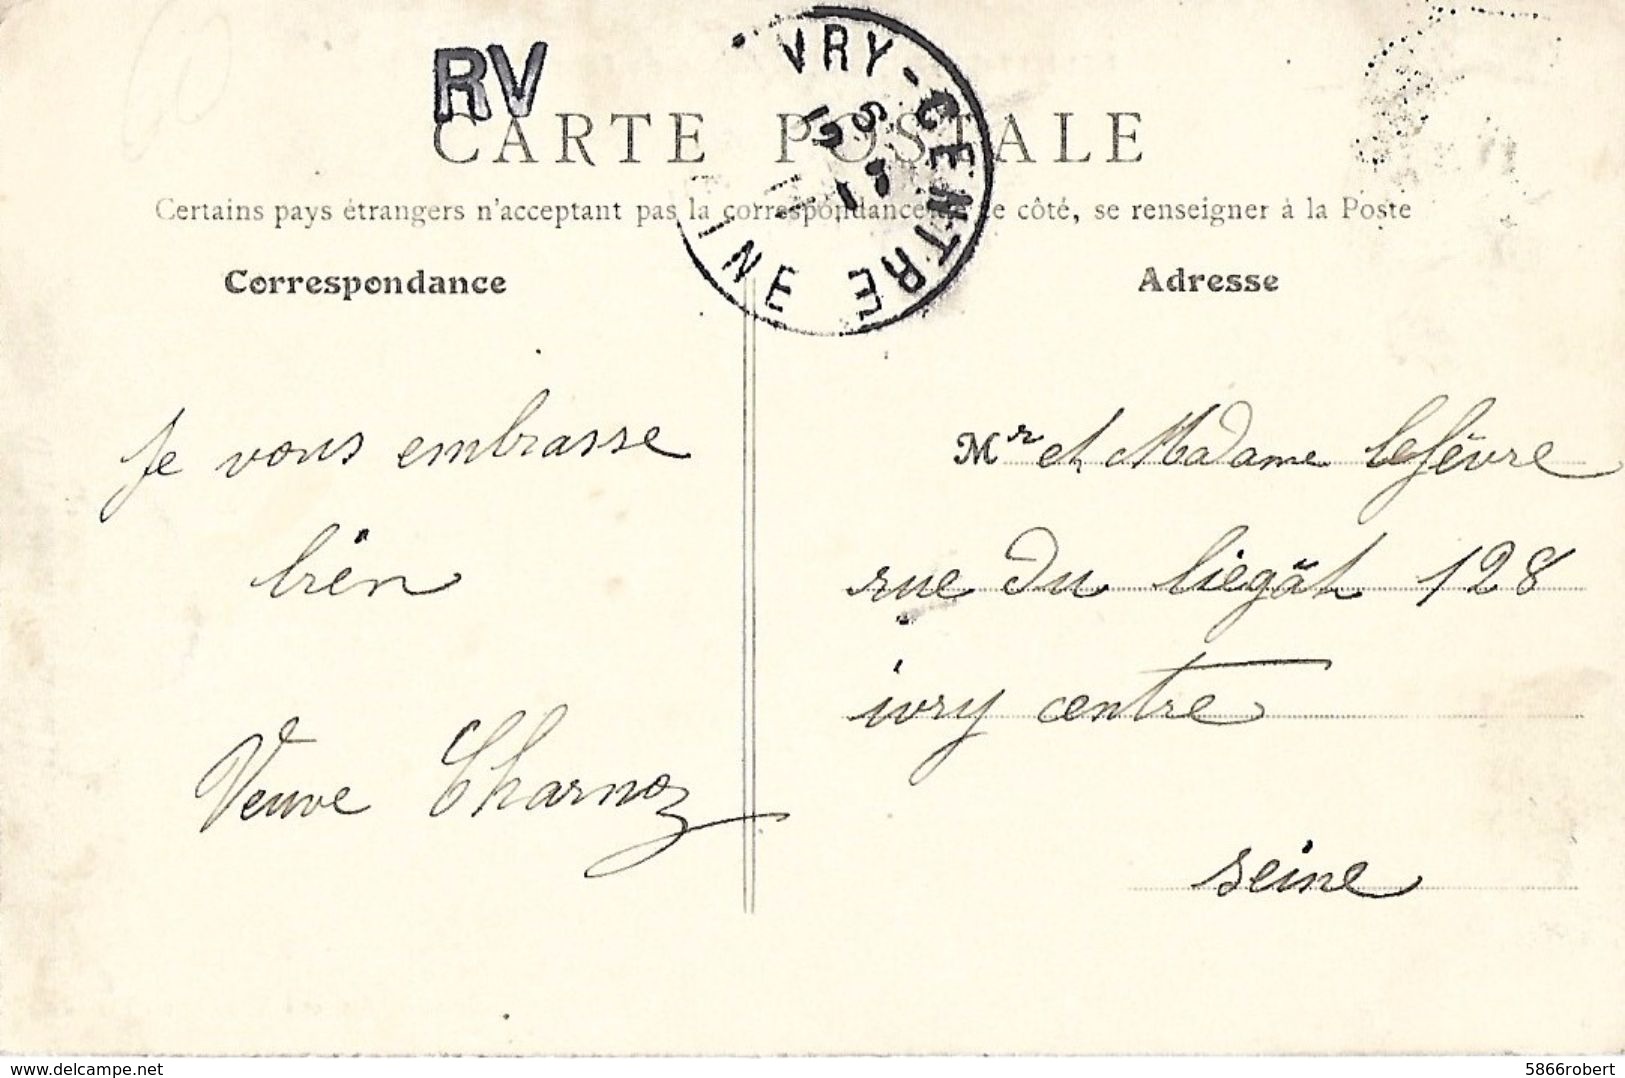 RV
IVRY-CENTRE
INE
CARTE POSTALE
Certains pays étrangers n'acceptant pas la correspondance de ce côté, se renseigner à la Poste
Correspondance
Je vous embrasse
bien
Veuve Charnoz
Adresse
Mr et Madame Lefèvre
rue du liegât 128
ivry centre
seine
www.delcampe.net
5866robert